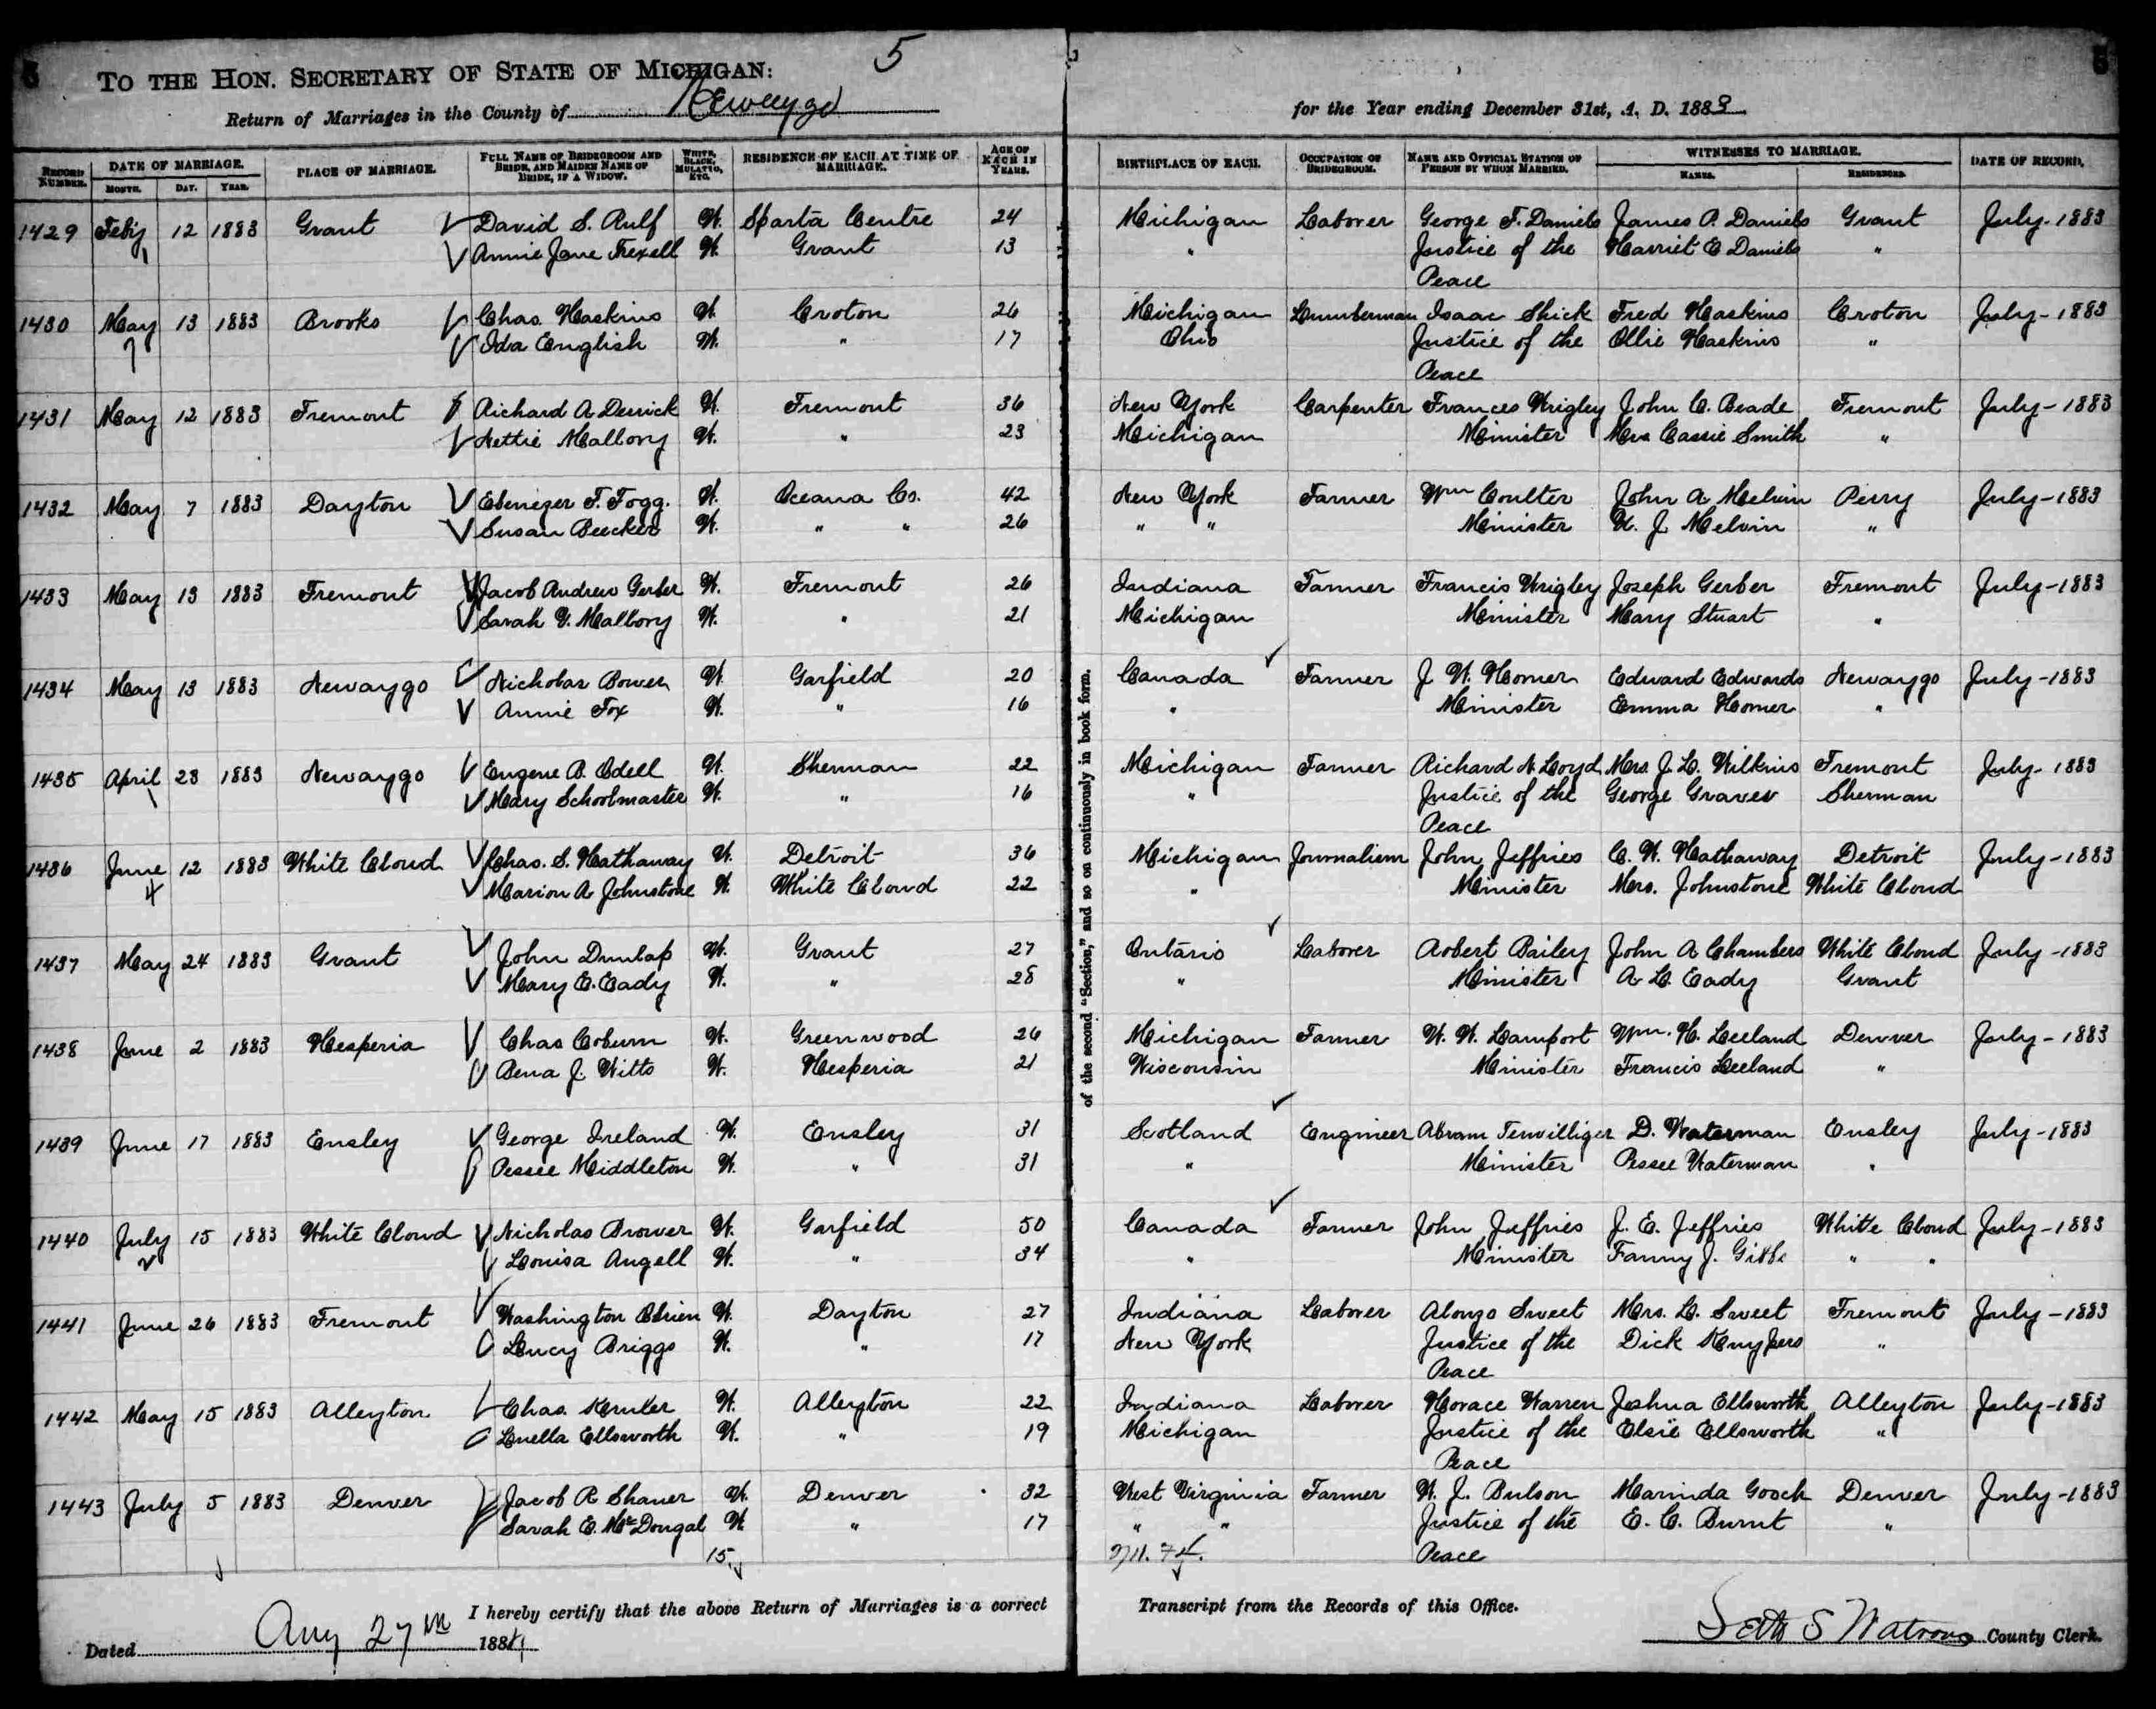 5
TO THE HON. SECRETARY OF STATE OF MICHIGAN:
Return of Marriages in the County of Newaygo for the Year ending December 31st, A. D. 1883
RECORD NUMBER. DATE OF MARRIAGE. MONTH. DAY. YEAR. PLACE OF MARRIAGE. FULL NAME OF BRIDEGROOM AND BRIDE, AND MAIDEN NAME OF BRIDE, IF A WIDOW. WHITE, BLACK, MULATTO, ETC. RESIDENCE OF EACH AT TIME OF MARRIAGE. AGE OF EACH IN YEARS. BIRTHPLACE OF EACH. OCCUPATION OF BRIDEGROOM. NAME AND OFFICIAL STATION OF PERSON BY WHOM MARRIED. WITNESSES TO MARRIAGE. NAMES. RESIDENCES. DATE OF RECORD.
1429 Feb'y 12 1883 Grant David S. Rulf W. Sparta Centre 24 Michigan Laborer George F. Daniels James P. Daniels Grant July-1883
Annie Jane Trexell W. Grant 13 " Justice of the Harriet E Daniels "
Peace
1430 May 13 1883 Brooks Chas. Haskins W. Croton 26 Michigan Lumberman Isaac Shick Fred Haskins Croton July-1883
Ida English W. " 17 Ohio Justice of the Ollie Haskins "
Peace
1431 May 12 1883 Fremont Richard A Derrick W. Fremont 36 New York Carpenter Frances Wrigley John C. Beade Fremont July-1883
Nettie Mallory W. " 23 Michigan Minister Mrs Cassie Smith "
1432 May 7 1883 Dayton Ebenezer F. Fogg. W. Oceana Co. 42 New York Farmer Wm Coulter John A Melvin Perry July-1883
Susan Beecker W. " " 26 " " Minister W. J. Melvin "
1433 May 13 1883 Fremont Jacob Andrew Gerber W. Fremont 26 Indiana Farmer Francis Wrigley Joseph Gerber Fremont July-1883
Sarah Y. Mallory W. " 21 Michigan Minister Mary Stuart "
1434 May 13 1883 Newaygo Nicholas Bower W. Garfield 20 Canada Farmer J. W. Horner Edward Edwards Newaygo July-1883
Annie Fox W. " 16 " Minister Emma Horner "
1435 April 23 1883 Newaygo Eugene B. Odell W. Sherman 22 Michigan Farmer Richard N Loyd Mrs. J. L. Wilkins Fremont July-1883
Mary Schoolmaster W. " 16 " Justice of the George Graves Sherman
Peace
1436 June 12 1883 White Cloud Chas. S. Hathaway W. Detroit 36 Michigan Journalism John Jeffries C. W. Hathaway Detroit July-1883
Marion A Johnstone W. White Cloud 22 " Minister Mrs. Johnstone White Cloud
1437 May 24 1883 Grant John Dunlap W. Grant 27 Ontario Laborer Robert Bailey John A Chambers White Cloud July-1883
Mary E. Eady W. " 28 " Minister A L. Eady Grant
1438 June 2 1883 Hesperia Chas Coburn W. Greenwood 26 Michigan Farmer W. W. Lamport Wm. H. Leeland Denver July-1883
Rena J. Witts W. Hesperia 21 Wisconsin Minister Francis Leeland "
1439 June 17 1883 Ensley George Ireland W. Ensley 31 Scotland Engineer Abram Terwilliger D. Waterman Ensley July-1883
Pessee Middleton W. " 31 " Minister Pessee Waterman "
1440 July 15 1883 White Cloud Nicholas Brower W. Garfield 50 Canada Farmer John Jeffries J. E. Jeffries White Cloud July-1883
Louisa Angell W. " 34 " Minister Fanny J. Gibbs " "
1441 June 26 1883 Fremont Washington OBrien W. Dayton 27 Indiana Laborer Alonzo Sweet Mrs. L. Sweet Fremont July-1883
Lucy Briggs W. " 17 New York Justice of the Dick Kuypers "
Peace
1442 May 15 1883 Alleyton Chas. W. Alleyton 22 Indiana Laborer Horace Warren Joshua Ellsworth Alleyton July-1883
Luella Ellsworth W. " 19 Michigan Justice of the Elsie Ellsworth "
Peace
1443 July 5 1883 Denver Jacob R Shaner W. Denver 32 West Virginia Farmer W. J. Bulson Marinda Gooch Denver July-1883
Sarah E. McDougal W. " 17 " " Justice of the E. C. Burnt "
15. Peace
of the second "Section," and so on continuously in book form.
I hereby certify that the above Return of Marriages is a correct Transcript from the Records of this Office.
Dated Aug 27th 1884 Seth S Watrous County Clerk.